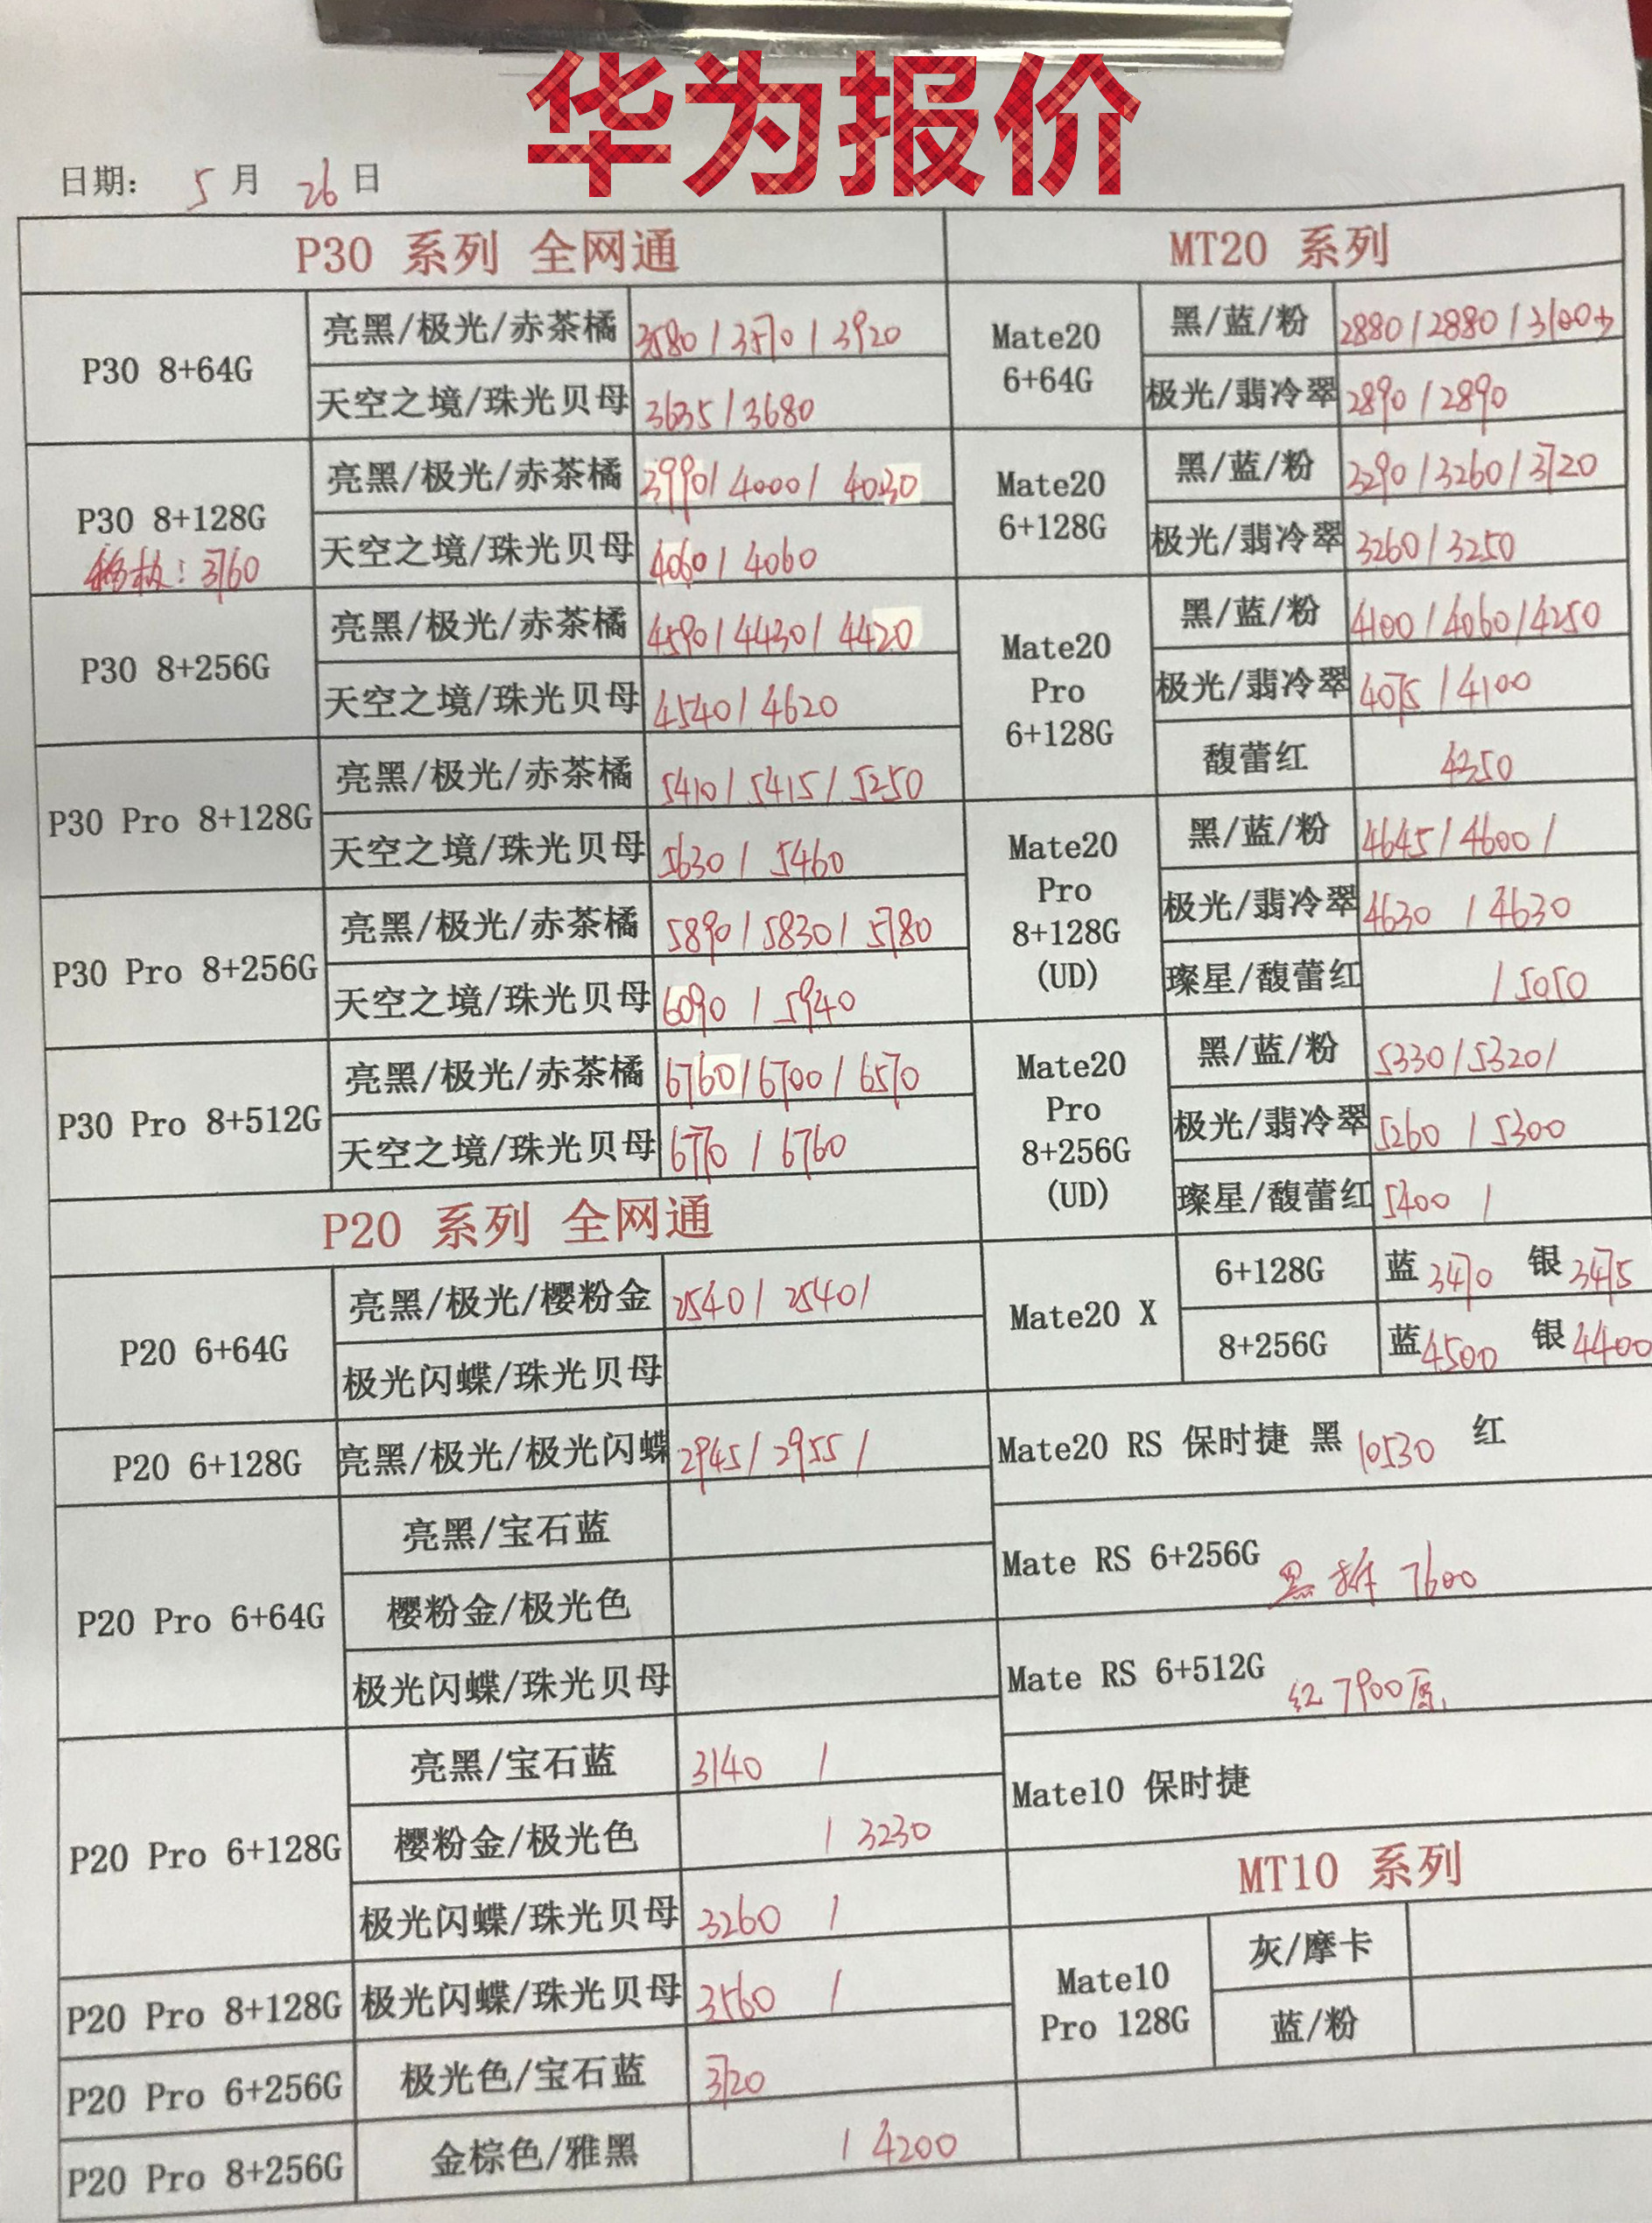 华为报价
日期： 5 月 26 日
P30 系列 全网通
P30 8+64G
亮黑/极光/赤茶橘 3580 / 3570 / 3920
天空之境/珠光贝母 3635 / 3680
P30 8+128G
移板：3760
亮黑/极光/赤茶橘 3990 / 4000 / 4030
天空之境/珠光贝母 4060 / 4060
P30 8+256G
亮黑/极光/赤茶橘 4590 / 4430 / 4420
天空之境/珠光贝母 4540 / 4620
P30 Pro 8+128G
亮黑/极光/赤茶橘 5410 / 5415 / 5250
天空之境/珠光贝母 5630 / 5460
P30 Pro 8+256G
亮黑/极光/赤茶橘 5890 / 5830 / 5780
天空之境/珠光贝母 6090 / 5940
P30 Pro 8+512G
亮黑/极光/赤茶橘 6760 / 6700 / 6570
天空之境/珠光贝母 6770 / 6760
P20 系列 全网通
P20 6+64G
亮黑/极光/樱粉金 2540 / 2540 /
极光闪蝶/珠光贝母
P20 6+128G
亮黑/极光/极光闪蝶 2945 / 2955 /
P20 Pro 6+64G
亮黑/宝石蓝
樱粉金/极光色
极光闪蝶/珠光贝母
P20 Pro 6+128G
亮黑/宝石蓝 3140 /
樱粉金/极光色 / 3230
极光闪蝶/珠光贝母 3260 /
P20 Pro 8+128G
极光闪蝶/珠光贝母 3560 /
P20 Pro 6+256G
极光色/宝石蓝 3720
P20 Pro 8+256G
金棕色/雅黑 / 4200
MT20 系列
Mate20
6+64G
黑/蓝/粉 2880 / 2880 / 3100
极光/翡冷翠 2890 / 2890
Mate20
6+128G
黑/蓝/粉 3290 / 3260 / 3720
极光/翡冷翠 3260 / 3250
Mate20
Pro
6+128G
黑/蓝/粉 4100 / 4060 / 4250
极光/翡冷翠 4075 / 4100
馥蕾红 4350
Mate20
Pro
8+128G
(UD)
黑/蓝/粉 4645 / 4600 /
极光/翡冷翠 4630 / 4630
璨星/馥蕾红 / 5050
Mate20
Pro
8+256G
(UD)
黑/蓝/粉 5330 / 5320 /
极光/翡冷翠 5260 / 5300
璨星/馥蕾红 5400 /
Mate20 X
6+128G 蓝 3470 银 3475
8+256G 蓝 4500 银 4400
Mate20 RS 保时捷 黑 10530 红
Mate RS 6+256G 黑 拆 7600
Mate RS 6+512G 红 7900 原
Mate10 保时捷
MT10 系列
Mate10
Pro 128G
灰/摩卡
蓝/粉